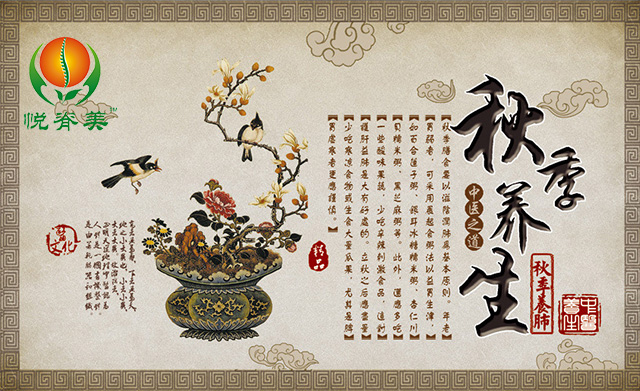 悦脊美
秋季养生
中医之道
秋季養肺
中醫養生
秋季膳食要以滋陰潤肺爲基本原則。年老
胃弱者，可采用晨起食粥法以益胃生津，
如百合蓮子粥、銀耳冰糖糯米粥、杏仁川
貝糯米粥、黑芝麻粥等。此外，還應多吃
一些酸味果蔬，少吃辛辣刺激食品，這對
護肝益肺是大有好處的。立秋之后應盡量
少吃寒凉食物或生食大量瓜果，尤其是脾
胃虛寒者更應謹慎。
精品